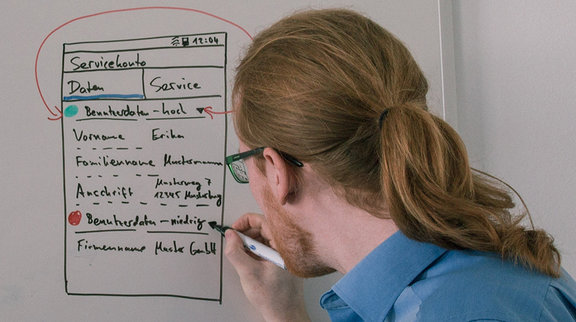 12:04
Servicekonto
Daten Service
Benutzerdaten - hoch
Vorname Erika
Familienname Mustermann
Anschrift Musterweg 7
12345 Musterburg
Benutzerdaten - niedrig
Firmenname Muster GmbH